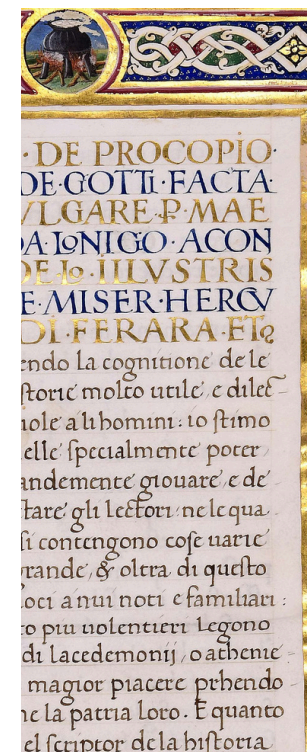 · DE PROCOPIO ·
DE · GOTTI · FACTA ·
VLGARE · P · MAE
DA LONIGO · A CON
DE · LO · ILLVSTRIS
E · MISER · HERCV
DI · FERARA · ET
endo la cognitione de le
storie molto utile, e dilet
uole a li homini: io stimo
elle specialmente poter
andemente giouare, e de
tare gli lectori: ne le qua
si contengono cose uarie
rande, & oltra di questo
oci a nui noti e familiari:
to piu uolentieri Legono
di lacedemonij, o athenie
magior piacere prhendo
ne la patria loro. E quanto
el scriptor de la historia